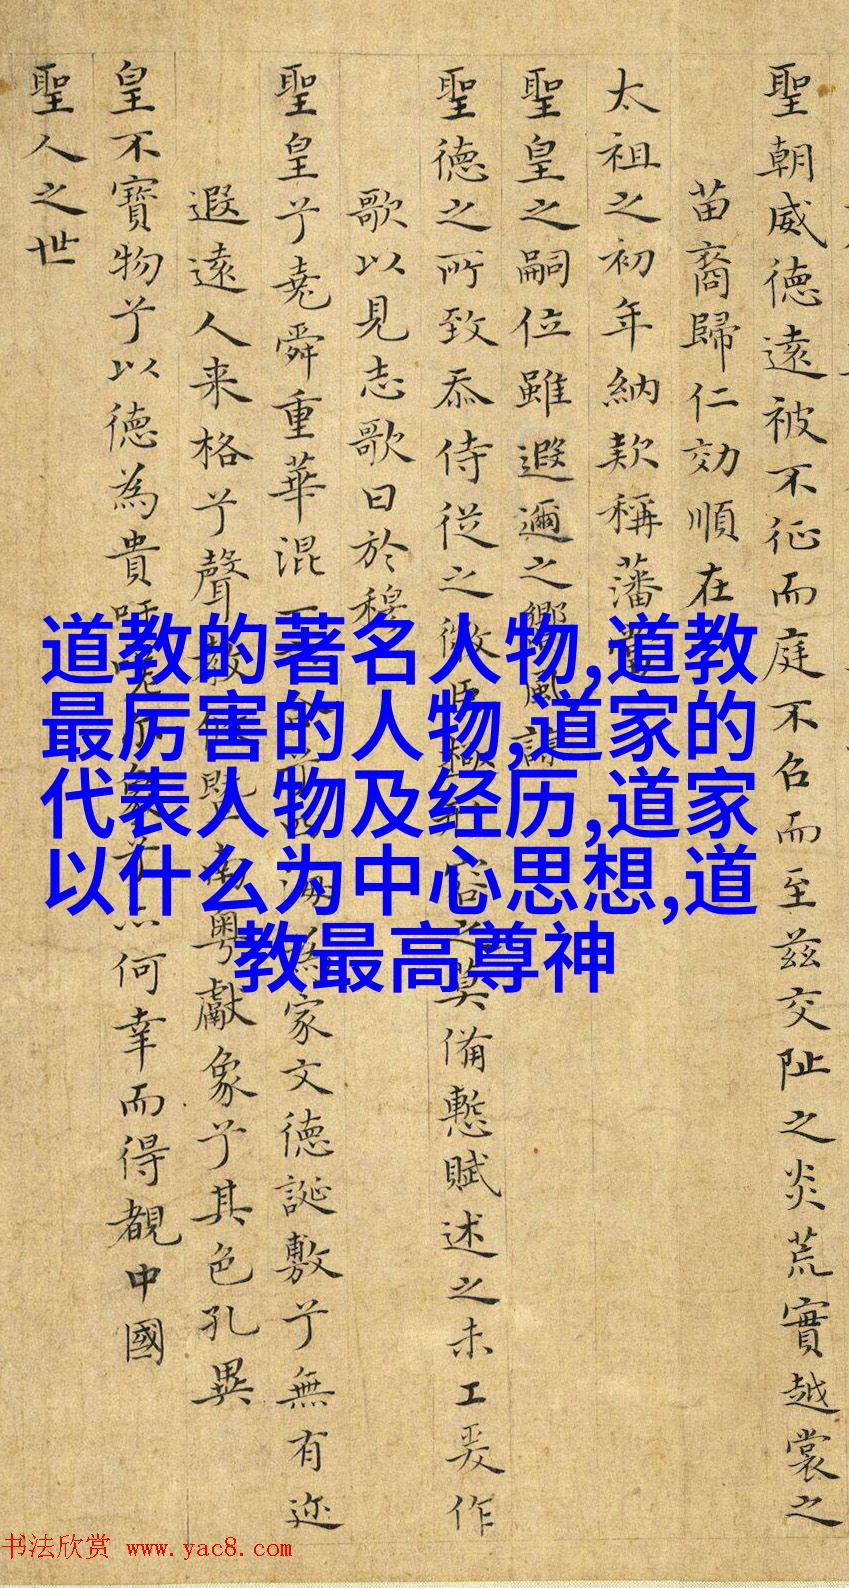 聖朝威德遠被不征而庭不召而至茲交阯之炎荒實越裳之
苗裔歸仁効順在
太祖之初年納欵稱藩
聖皇之嗣位雖遐邇之嚮風諒
聖德之所致忝侍從之微臣容之莫備慙賦述之未工爰作
歌以見志歌曰於穆
聖皇兮堯舜重華混一海為家文德誕敷兮無有迩
遐遠人来格兮聲教暨南粵獻象兮其色孔異
皇不寶物兮以德為貴吁象兮何幸而得覩中國
聖人之世
道教的著名人物,道教
最厉害的人物,道家的
代表人物及经历,道家
以什么为中心思想,道
教最高尊神
书法欣赏 www.yac8.com